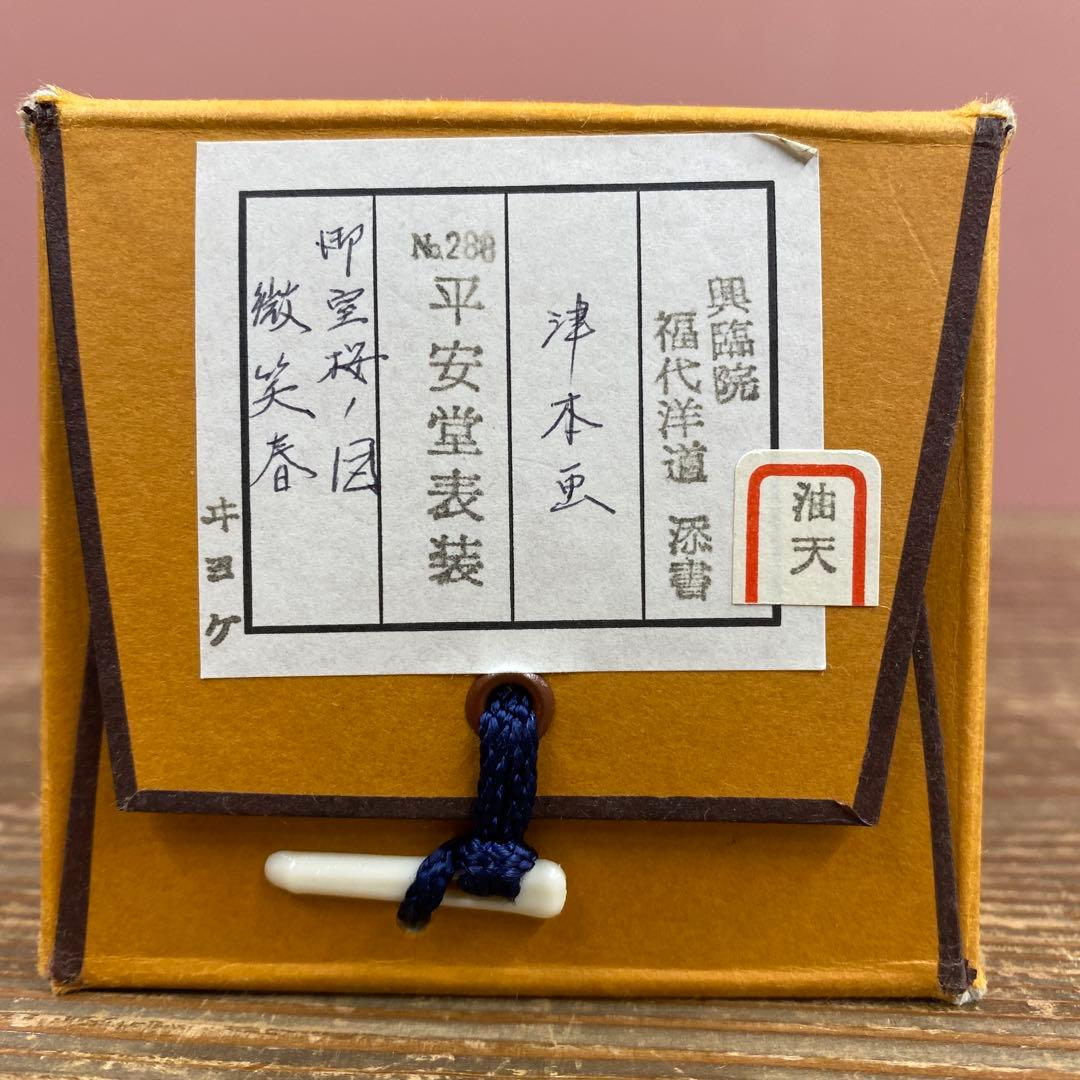 興臨院
福代洋道 添書
津本画
No.288
平安堂表装
御室桜ノ図
微笑春
ヰヨケ
油天